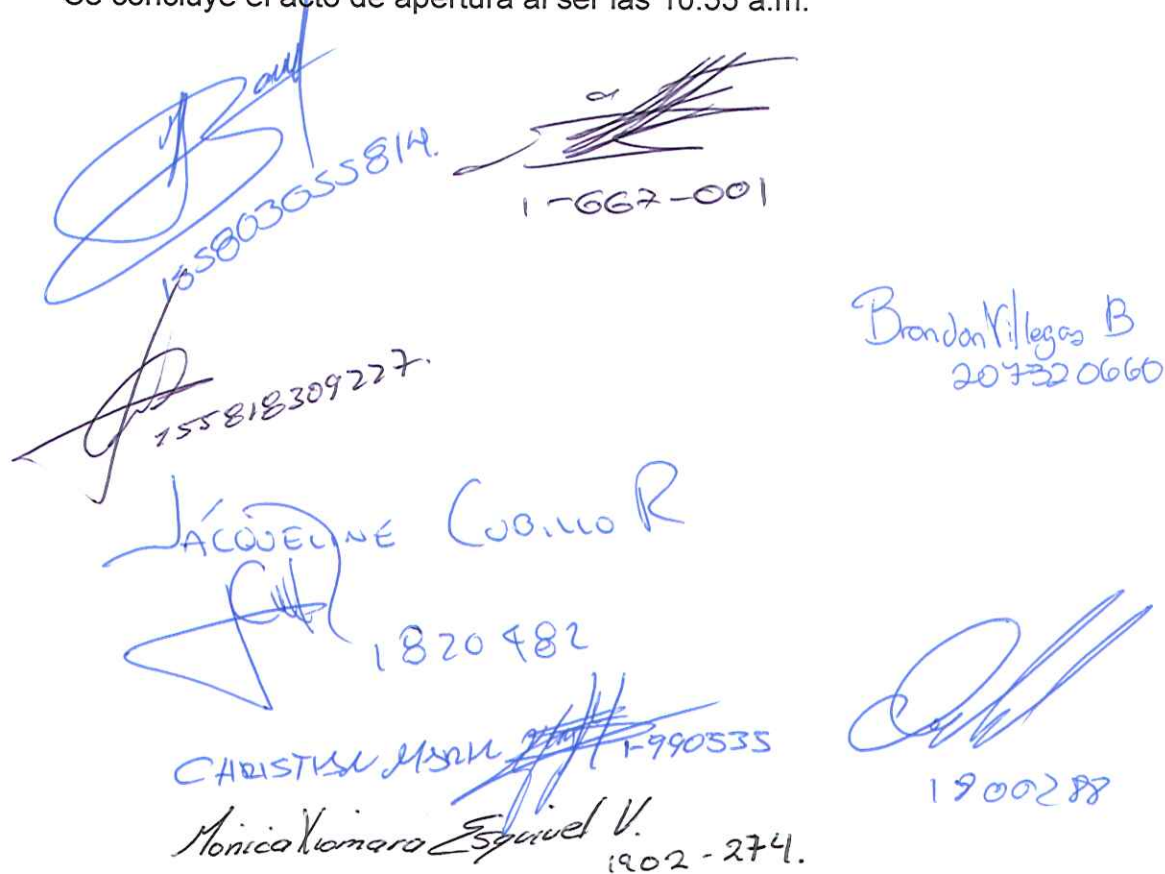 Se concluye el acto de apertura al ser las 10:55 a.m.
155803055814.
1-667-001
Brandon Villegas B
207320660
155818309227.
JACQUELINE CUBILLO R
1820482
CHRISTIAN MARIN 1-990535
1900288
Monica Xiomara Esquivel V.
1902-274.